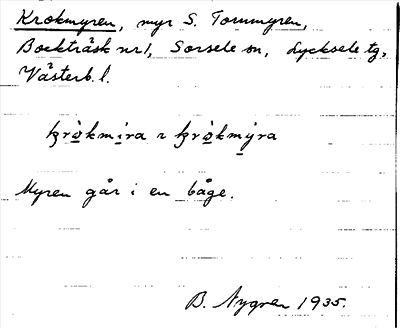 Krokmyren, myr S. Tommyren,
Bockträsk nr 1, Sorsele sn, Lycksele tg,
Västerb. l.
krò̤kmi̤ra ɿ krò̤kmy̤ra
Myren går i en båge.
B. Nygren 1935.